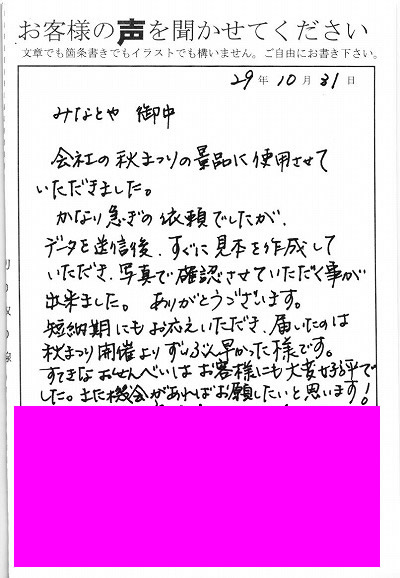 お客様の声を聞かせてください
文章でも箇条書きでもイラストでも構いません。ご自由にお書き下さい。
29年10月31日
みなとや 御中
会社の秋まつりの景品に使用させて
いただきました。
かなり急ぎの依頼でしたが、
データを送信後、すぐに見本を作成して
いただき、写真で確認させていただく事が
出来ました。 ありがとうございます。
短納期にもお応えいただき、届いたのは
秋まつり開催よりずいぶん早かった様です。
すてきなおせんべいはお客様にも大変好評で
した。また機会があればお願したいと思います!